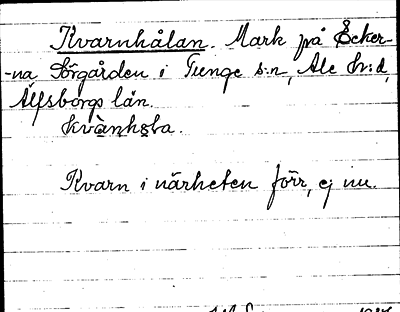 Kvarnhålan. Mark på Åcker-
-na Sörgården i Tunge s:n, Ale h:d,
Älfsborgs län.
kvànhɔla.
Kvarn i närheten förr, ej nu.